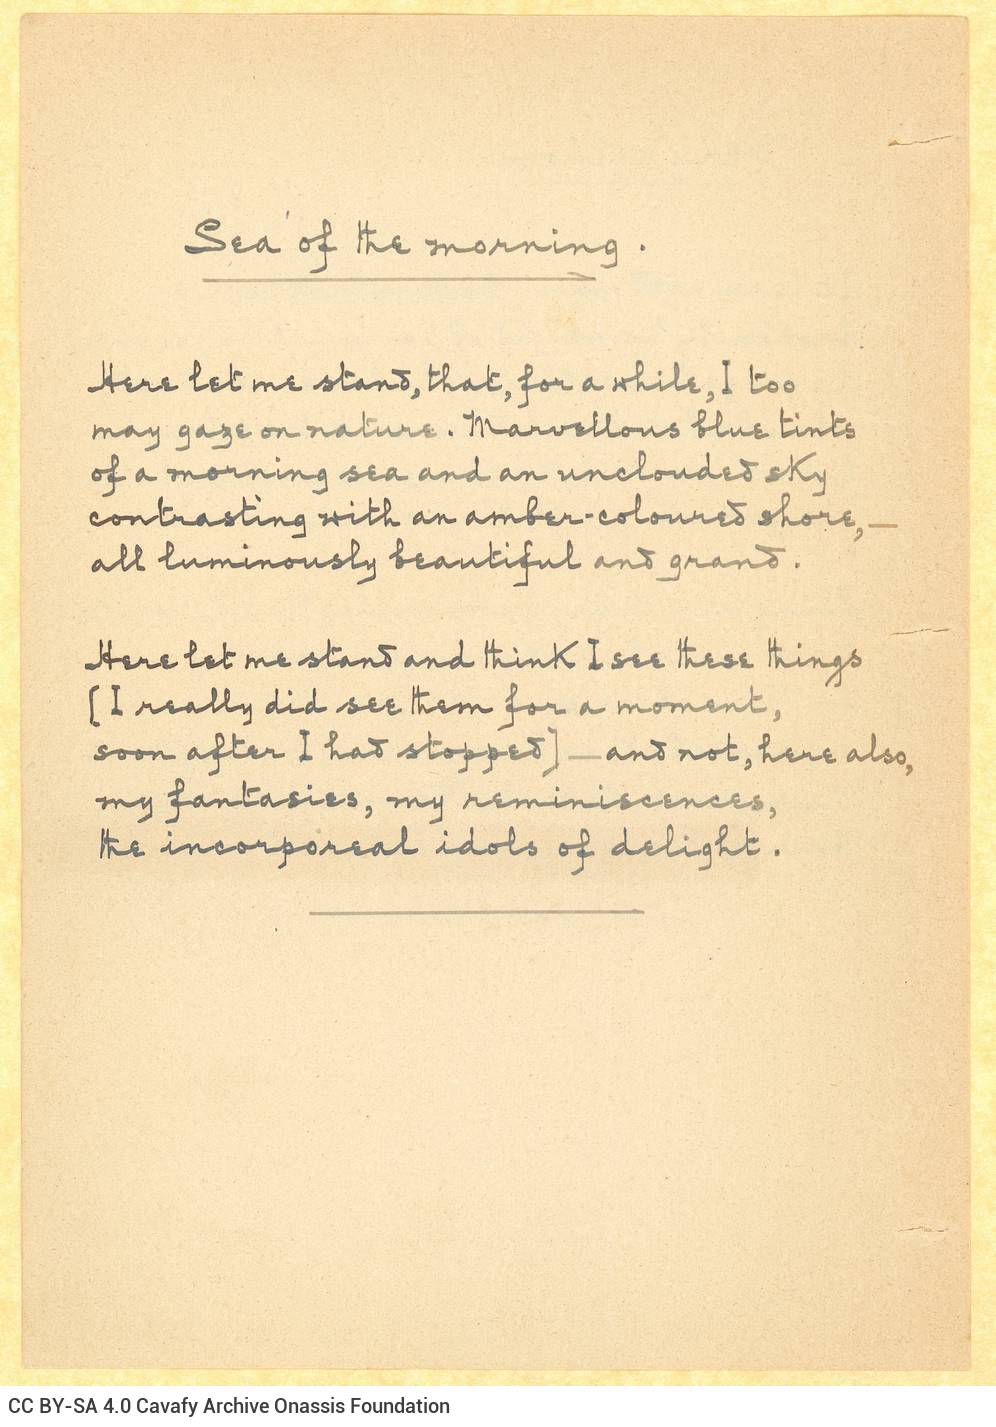 Sea of the morning.
Here let me stand, that, for a while, I too
may gaze on nature. Marvellous blue tints
of a morning sea and an unclouded sky
contrasting with an amber-coloured shore,—
all luminously beautiful and grand.
Here let me stand and think I see these things
[I really did see them for a moment,
soon after I had stopped]—and not, here also,
my fantasies, my reminiscences,
the incorporeal idols of delight.
CC BY-SA 4.0 Cavafy Archive Onassis Foundation